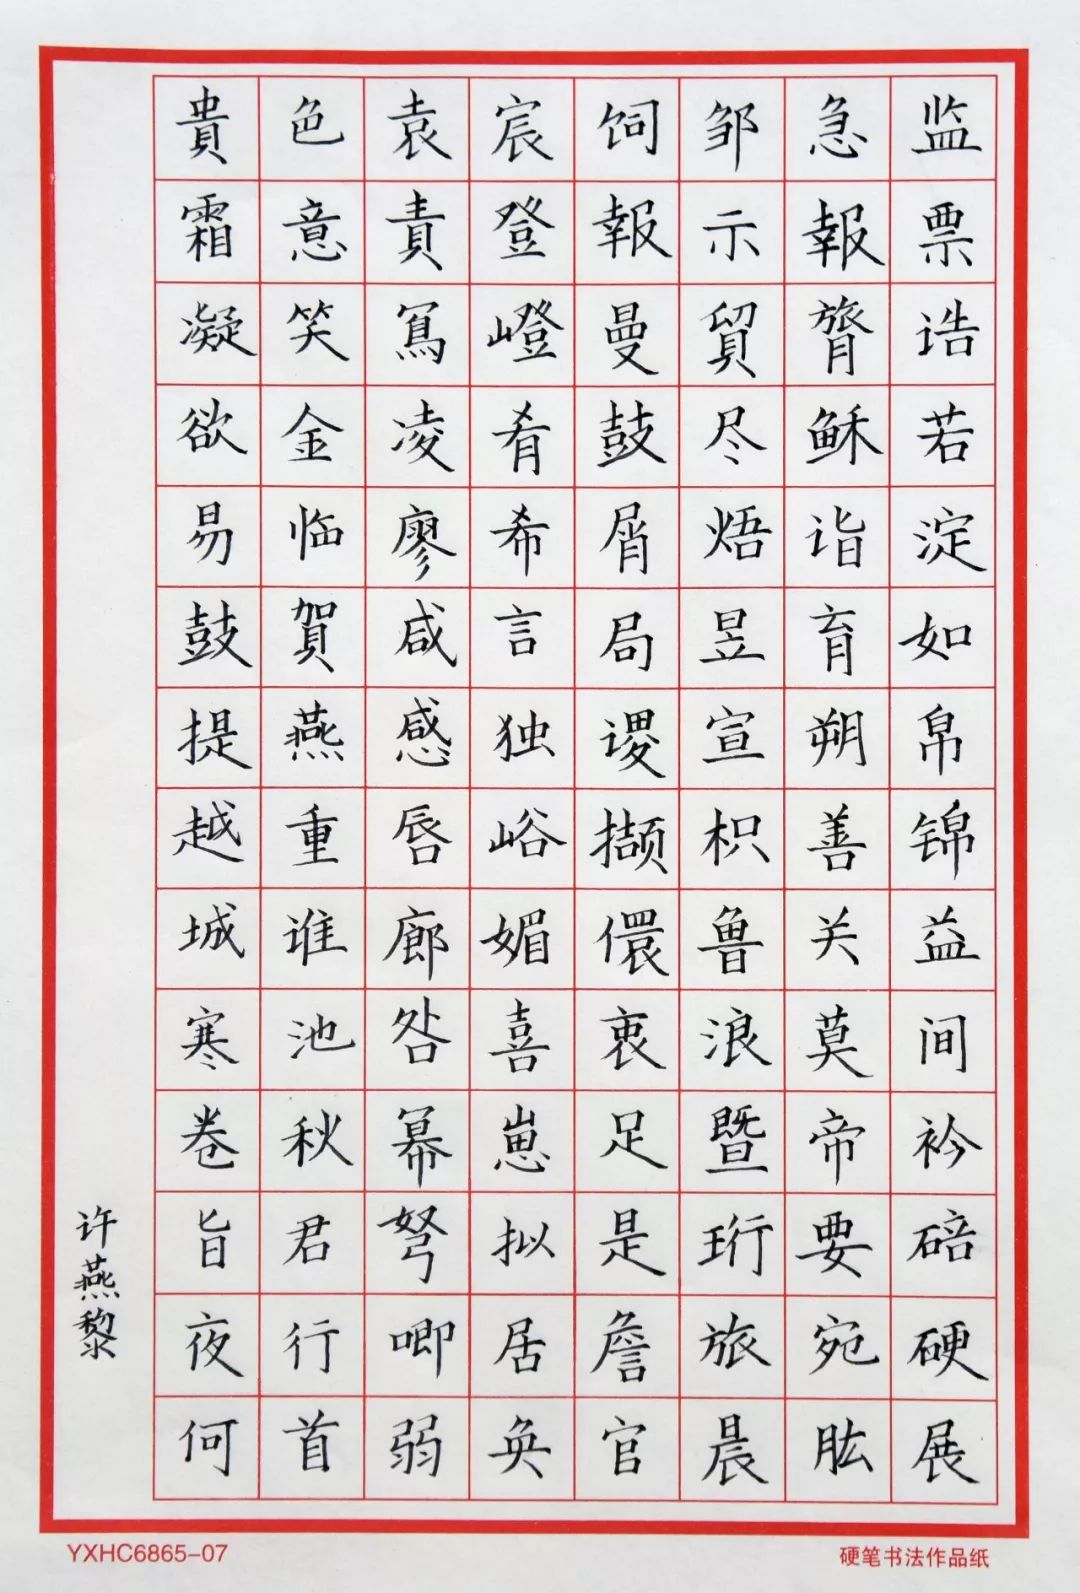 监票诰若淀如帛锦益间衿碚硬展
急報膂稣诣育朔善关莫帝要宛肱
邹示貿尽焐昱宣枳鲁浪暨珩旅晨
饲報曼鼓屑局谡撷儇衷足是詹官
宸登嶝肴希言独峪媚喜崽拟居奂
袁責冩凌廖咸感唇廊咎幂弩唧弱
色意笑金临賀燕重谁池秋君行首
貴霜凝欲易鼓提越城寒卷旨夜何
许燕黎
YXHC6865-07
硬笔书法作品纸